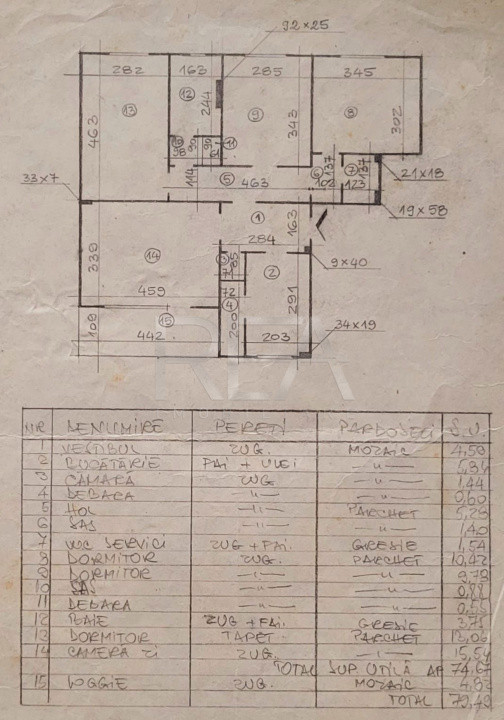 92×25
282
163
285
345
12
244
13
9
8
463
343
302
10
90
90
11
137
6
7
137
98
114
5
463
102
123
21×18
33×7
19×58
1
163
284
14
339
3
85
2
9×40
71
459
72
4
15
291
109
442
200
203
34×19
NR DENUMIRE PEREȚI PARDOSELI S.U.
1 VESTIBUL ZUG. MOZAIC 4,59
2 BUCĂTĂRIE FAI + ULEI —"—
3 CĂMARĂ ZUG —"— 1,44
4 DEBARA —"— —"— 0,60
5 HOL —"— PARCHET 5,28
6 SAS —"— —"— 1,40
7 WC SERVICI ZUG + FAI. GRESIE 1,54
8 DORMITOR ZUG. PARCHET 10,42
9 DORMITOR —"— —"— 9,78
10 SAS —"— —"— 0,88
11 DEBARA —"— —"— 0,55
12 BAIE ZUG + FAI. GRESIE 3,75
13 DORMITOR TAPET PARCHET 13,06
14 CAMERA ZI ZUG. —"— 15,54
TOTAL SUP. UTILĂ AP 74,67
15 LOGGIE ZUG. MOZAIC 4,82
TOTAL 79,49